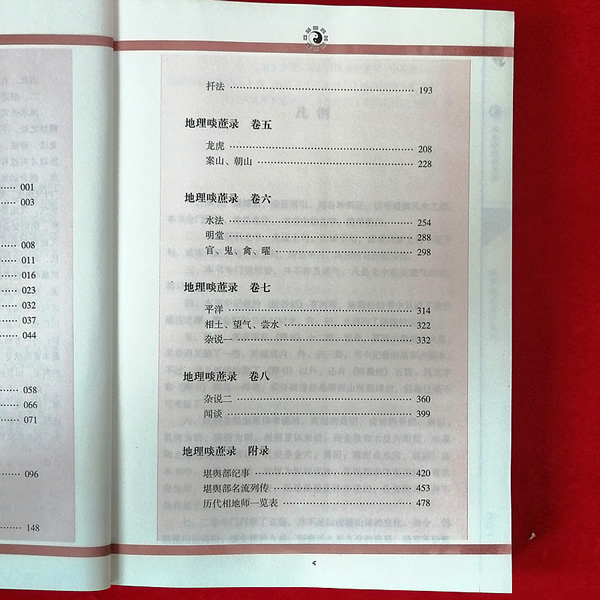 001
003
008
011
016
023
032
037
044
058
066
071
096
148
扦法 193
地理啖蔗录 卷五
龙虎 208
案山、朝山 228
地理啖蔗录 卷六
水法 254
明堂 288
官、鬼、禽、曜 298
地理啖蔗录 卷七
平洋 314
相土、望气、尝水 322
杂说一 332
地理啖蔗录 卷八
杂说二 360
闻谈 399
地理啖蔗录 附录
堪舆部纪事 420
堪舆部名流列传 453
历代相地师一览表 478